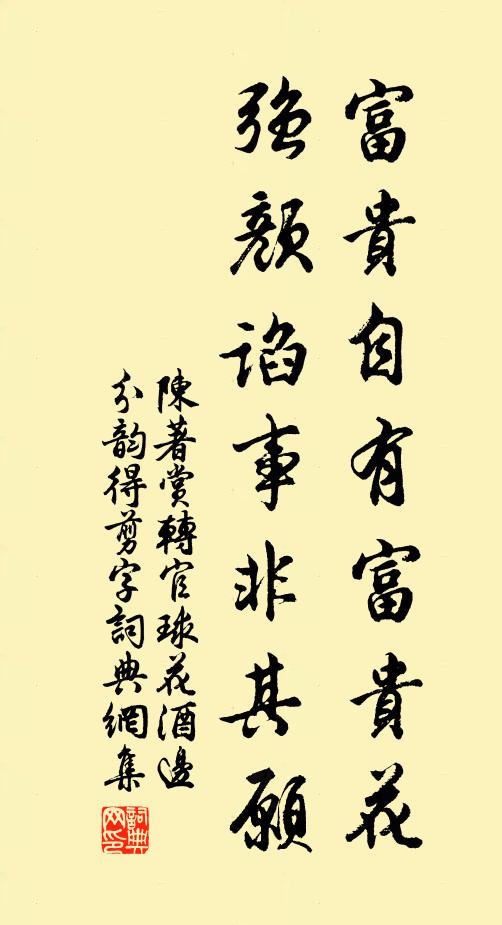 富貴自有富貴花
强顏諂事非其願
陳著賞轉官球花酒邊
分韵得剪字詞典網集
詞典
网印